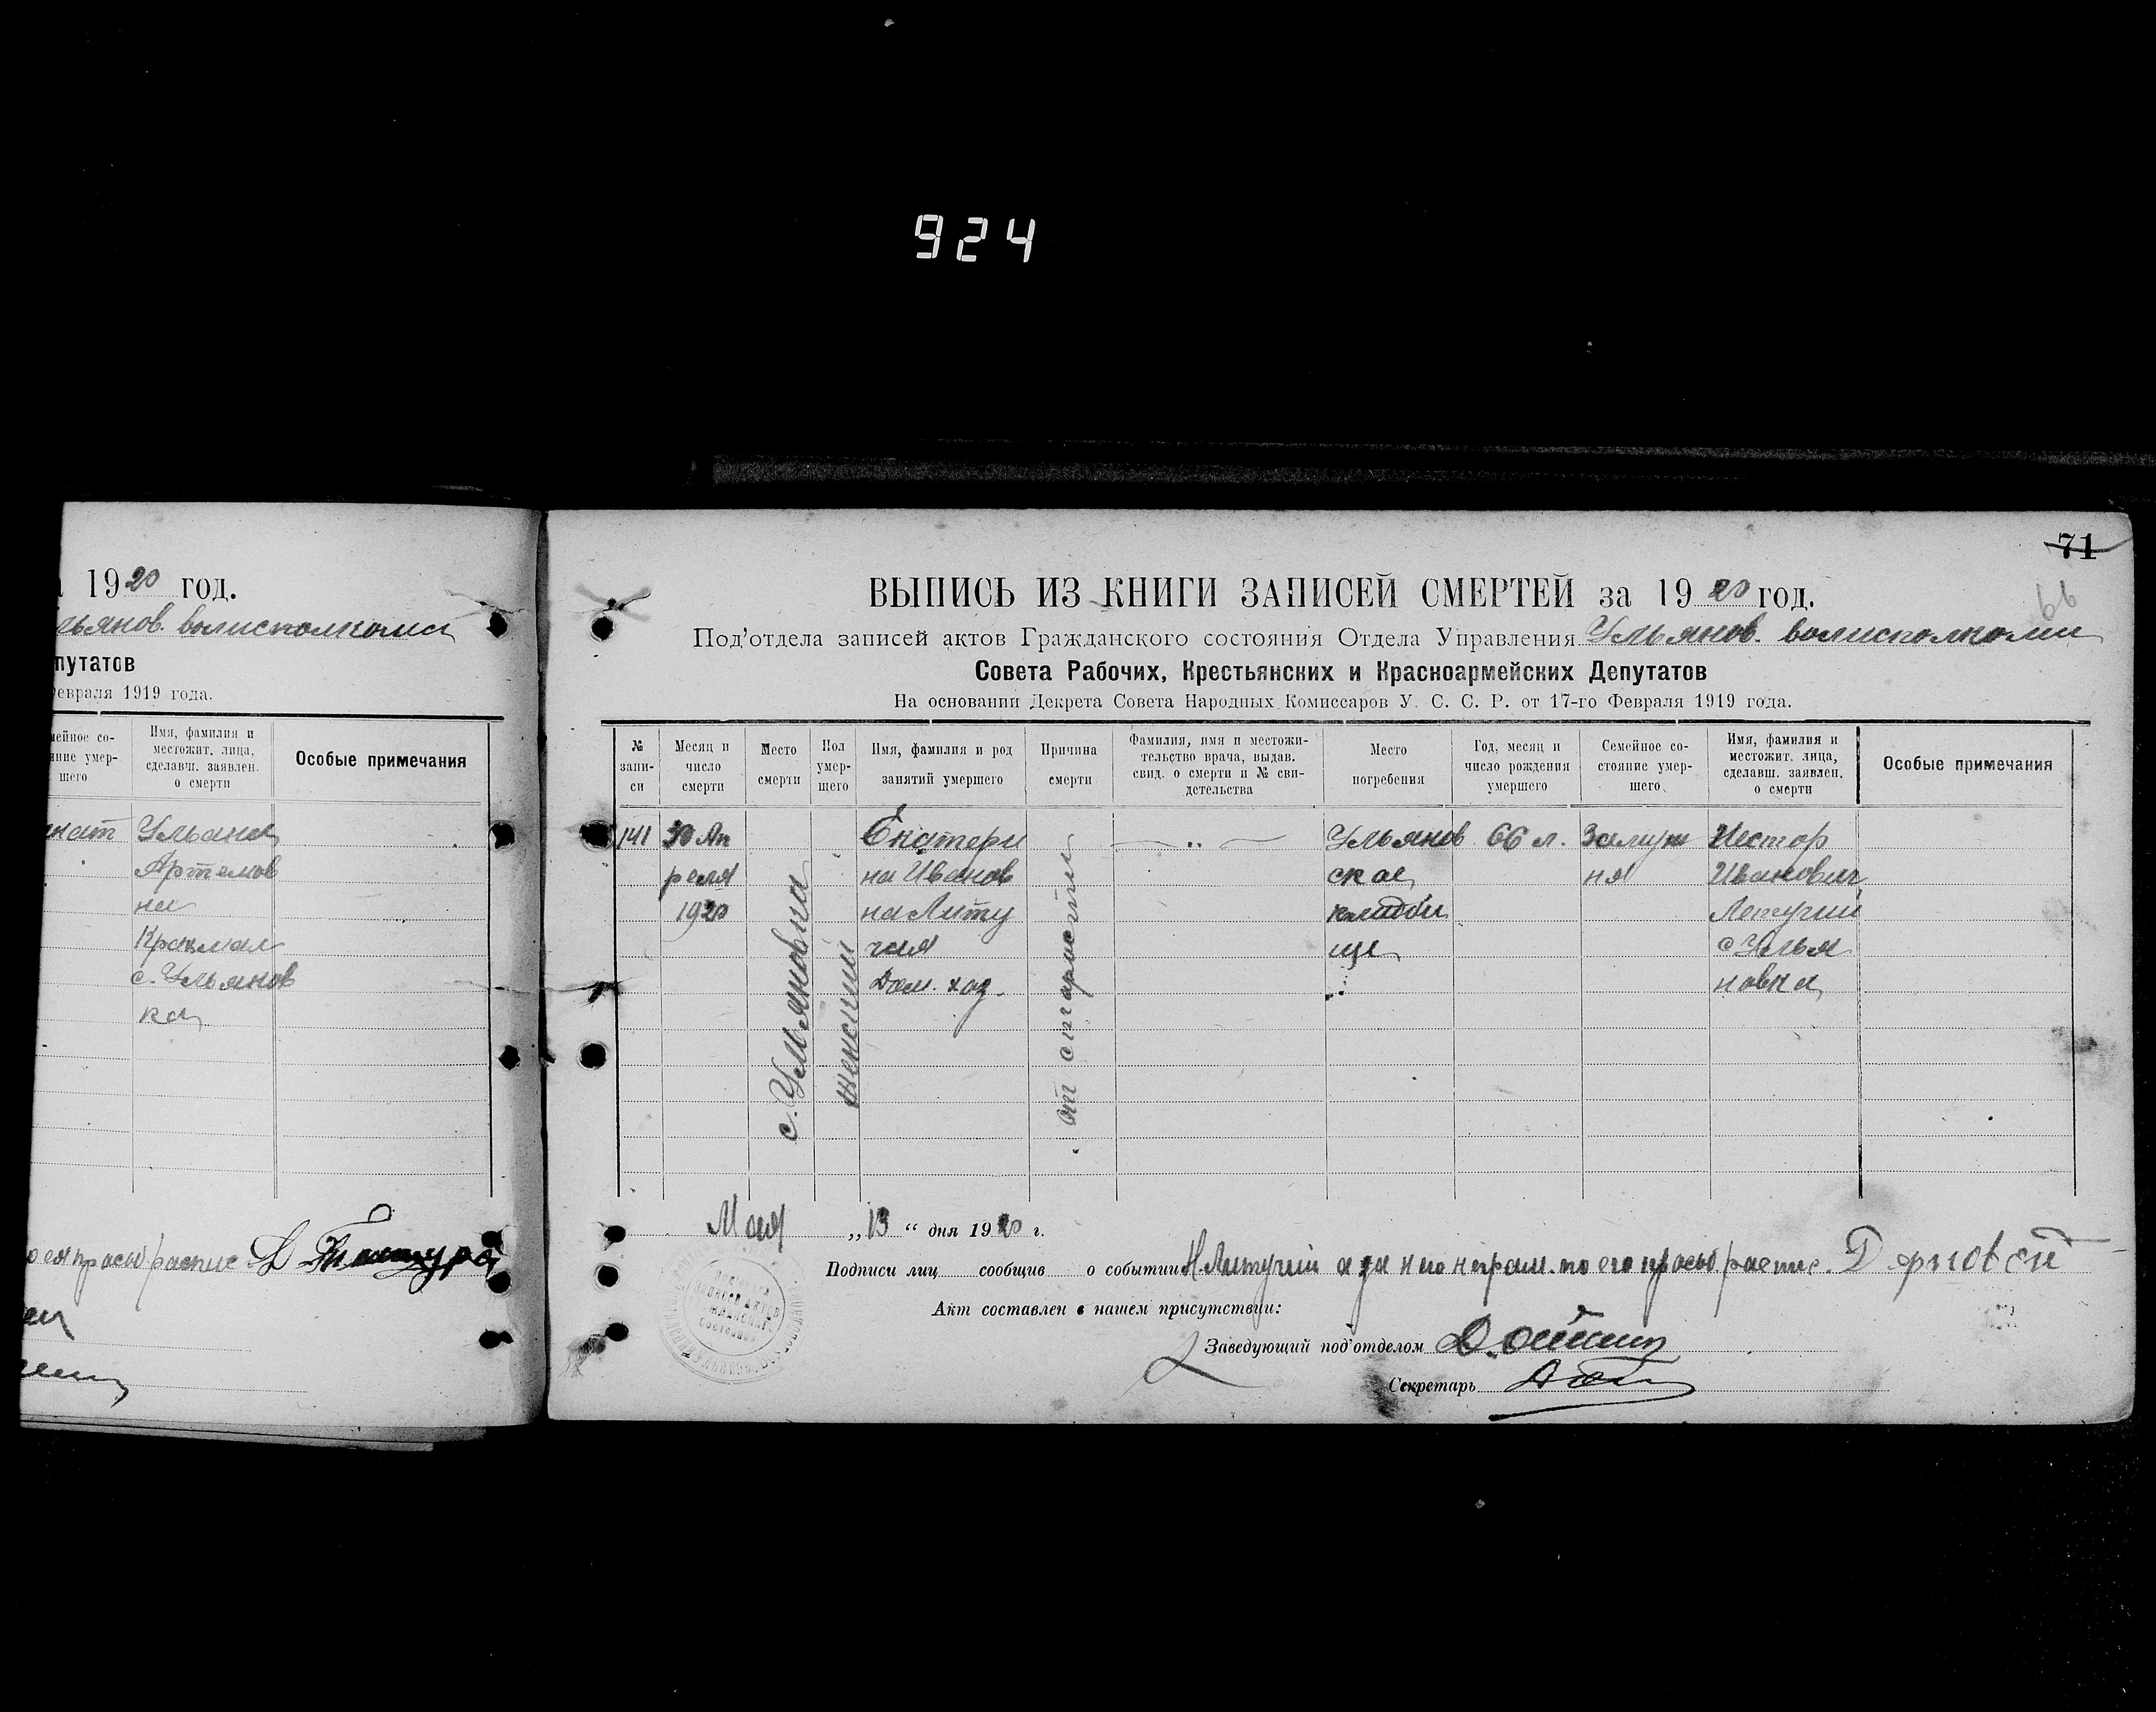 924
1920 год.
льянов. волисполкома
путатов
февраля 1919 года.
мейное со-
яние умер-
шего
Имя, фамилия и
местожит. лица,
сделавш. заявлен.
о смерти
Особые примечания
Ульяна
Артемов
на
с. Ульянов
ка
71
66
ВЫПИСЬ ИЗ КНИГИ ЗАПИСЕЙ СМЕРТЕЙ за 1920 год.
Под'отдела записей актов Гражданского состояния Отдела Управления Ульянов. волисполкома
Совета Рабочих, Крестьянских и Красноармейских Депутатов
На основании Декрета Совета Народных Комиссаров У. С. С. Р. от 17-го Февраля 1919 года.
№
запи-
си
Месяц и
число
смерти
Место
смерти
Пол
умер-
шего
Имя, фамилия и род
занятий умершего
Причина
смерти
Фамилия, имя и местожи-
тельство врача, выдав.
свид. о смерти и № сви-
детельства
Место
погребения
Год, месяц и
число рождения
умершего
Семейное со-
стояние умер-
шего
Имя, фамилия и
местожит. лица,
сделавш. заявлен.
о смерти
Особые примечания
141
30 Ап
реля
1920
с. Ульяновка
женский
Екатери
на Иванов
на Литу
чая
Дом. хоз.
от старости
Ульянов
ское
кладби
ще
66 л.
Замуж
няя
Нестор
Иванович
Летучий
с Улья
новка
Мая „13“ дня 1920 г.
Подписи лиц сообщив о событии Н. Литучий а за него неграм. по его просьб распис.
Акт составлен в нашем присутствии:
Заведующий под'отделом
Секретарь